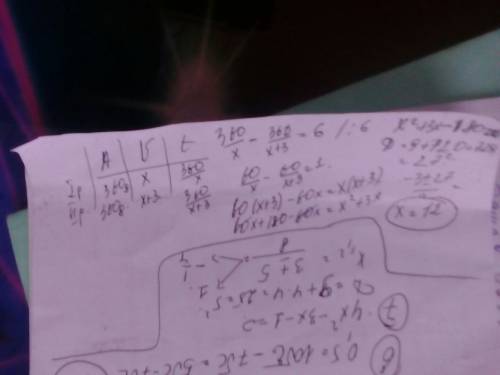 A V t
Iр 360g x 360/x
IIр 360g. x+3 360/x+3
360/x - 360/x+3 = 6 /:6
60/x - 60/x+3 = 1.
60(x+3) - 60x = x(x+3)
60x+180-60x = x²+3x
x²+3x-180=0
D = 9+720=729
= 27²
-3±27/2 =
x = 12
6) 0,5 = 10√2 - 7√2 =
7) 4x²-3x-1=0
D = 9+4·4=25=5²
x1,2 = 3±5/8 = 1. -1/4